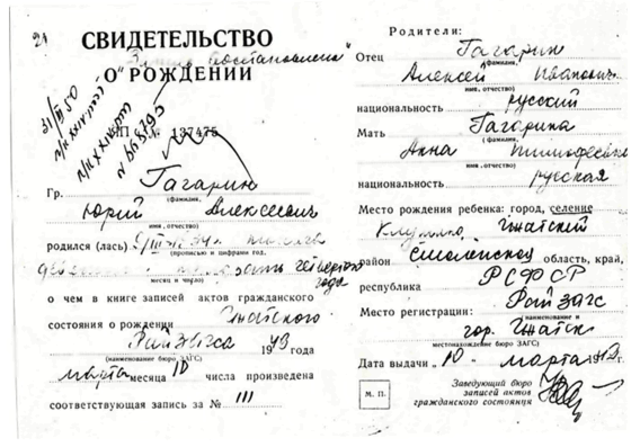 21
СВИДЕТЕЛЬСТВО
Запись восстановлена"
О РОЖДЕНИИ
31/III 50
№ 137475
Гр. Гагарин
(фамилия,
Юрий Алексеевич
имя, отчество)
родился (лась) 9/III-1934. тысяча
(прописью и цифрами год,
девятьсот тридцать четвертого
месяц и число) года
о чем в книге записей актов гражданского
состояния о рождении Гжатского
Райзагса 1943 года
(наименование бюро ЗАГС)
марта месяца 10 числа произведена
соответствующая запись за № 111
Родители:
Отец Гагарин
(фамилия,
Алексей Иванович
имя, отчество)
национальность русский
Мать Гагарина
(фамилия,
Анна Тимофеевна
имя, отчество)
национальность русская
Место рождения ребенка: город, селение
Клушино, Гжатский
район Смоленской область, край,
республика РСФСР
Место регистрации: Райзагс
(наименование и
гор. Гжатск
местонахождение бюро ЗАГС)
Дата выдачи „10" марта г.
М. П.
Заведующий бюро
записей актов
гражданского состояния